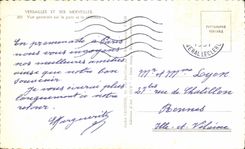 VERSAILLES ET SES MERVEILLES
Vue générale sur le parc et
En promenade à Paris
nous vous envoyons
nos meilleures amitiés
ainsi que notre bon
souvenir
Je vous écrirai plus
longuement à notre
retour.
Marguerite
Mr et Mme Leyon
21 ter rue de Châtillon
Rennes
Ille et Vilaine